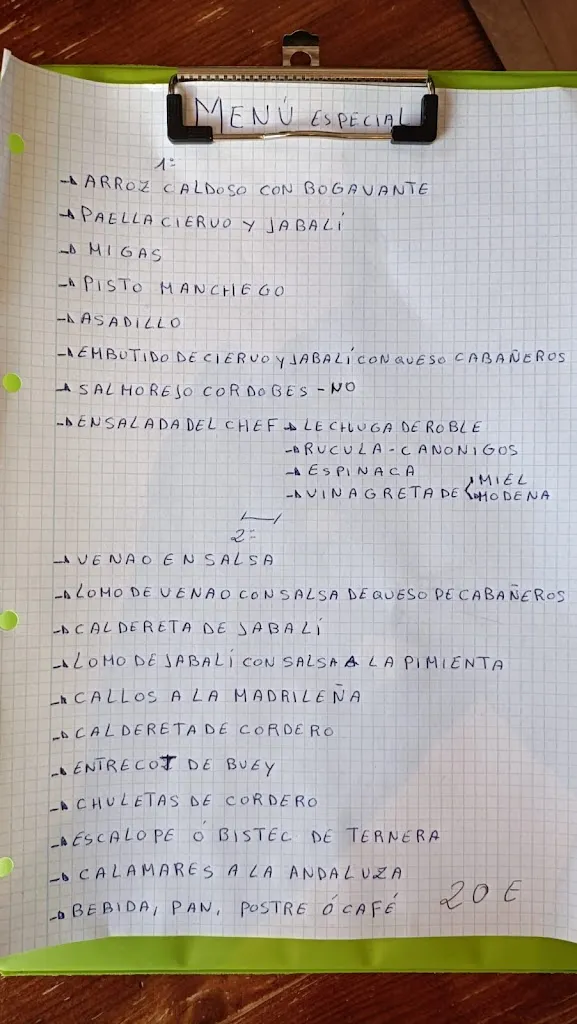 MENÚ ESPECIAL
1º
→ ARROZ CALDOSO CON BOGAVANTE
→ PAELLA CIERVO Y JABALÍ
→ MIGAS
→ PISTO MANCHEGO
→ ASADILLO
→ EMBUTIDO DE CIERVO Y JABALÍ CON QUESO CABAÑEROS
→ SALMOREJO CORDOBES - NO
→ ENSALADA DEL CHEF → LECHUGA DE ROBLE
→ RUCULA - CANONIGOS
→ ESPINACA
→ VINAGRETA DE { MIEL
MODENA
2º
→ VENAO EN SALSA
→ LOMO DE VENAO CON SALSA DE QUESO DE CABAÑEROS
→ CALDERETA DE JABALÍ
→ LOMO DE JABALÍ CON SALSA A LA PIMIENTA
→ CALLOS A LA MADRILEÑA
→ CALDERETA DE CORDERO
→ ENTRECOT DE BUEY
→ CHULETAS DE CORDERO
→ ESCALOPE Ó BISTEC DE TERNERA
→ CALAMARES A LA ANDALUZA
→ BEBIDA, PAN, POSTRE Ó CAFÉ 20 E